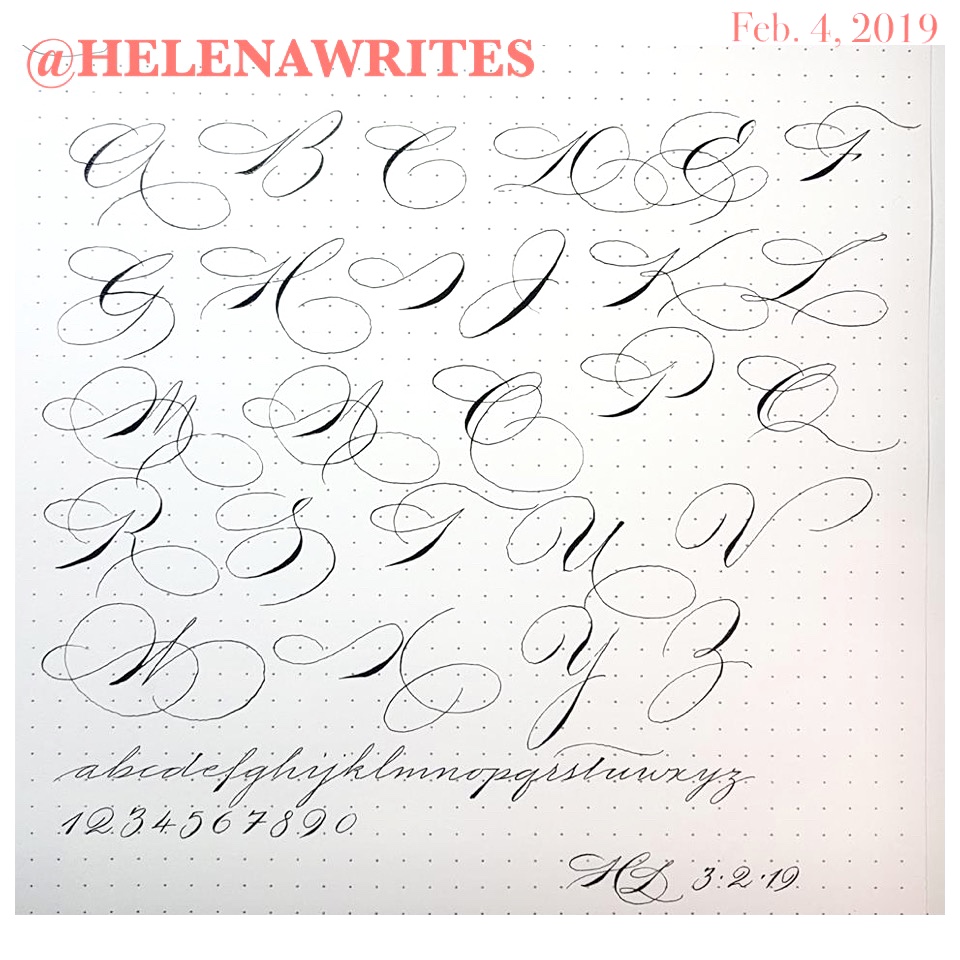 Feb. 4, 2019
@HELENAWRITES
A B C D E F
G H I J K L
M N O P Q
R S T U V
W X Y Z
abcdefghijklmnopqrstuwxyz
1 2 3 4 5 6 7 8 9 0
HL 3·2·19